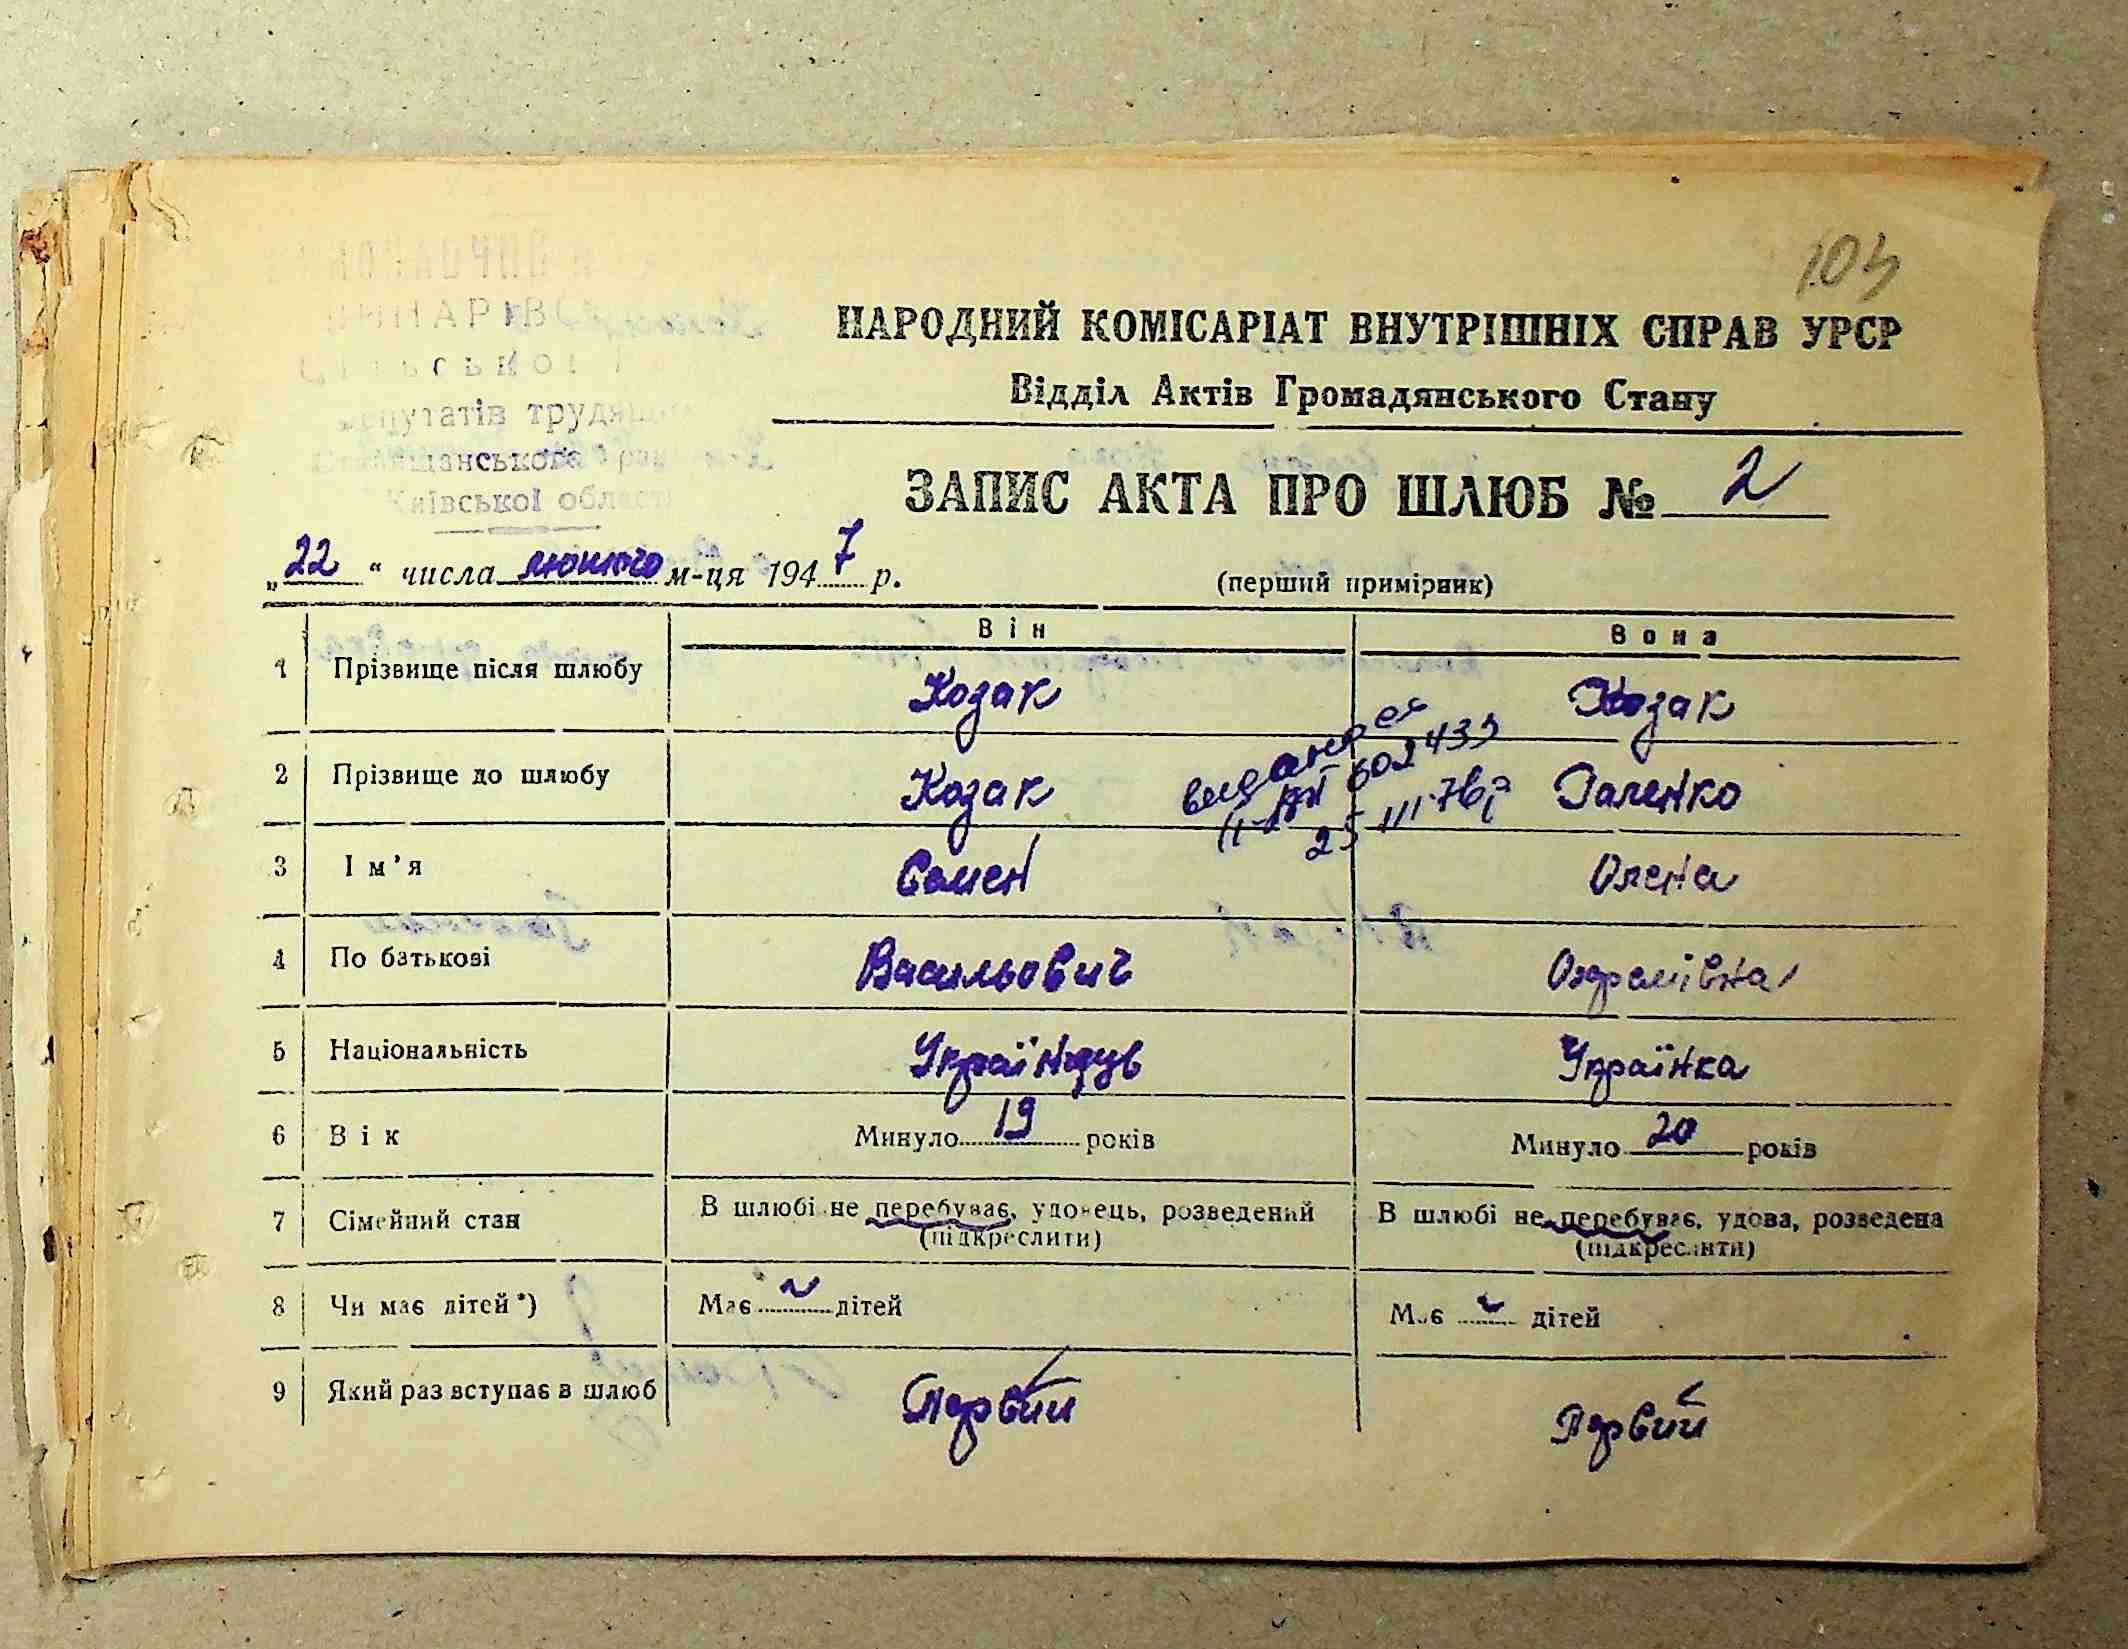 103
НАРОДНИЙ КОМІСАРІАТ ВНУТРІШНІХ СПРАВ УРСР
Відділ Актів Громадянського Стану
депутатів трудящих
Київської області
ЗАПИС АКТА ПРО ШЛЮБ № 2
„22“ числа лютого м-ця 1947 р.
(перший примірник)
Він Вона
1 Прізвище після шлюбу Козак Козак
2 Прізвище до шлюбу Козак Галенко
602433
25 III.76р
3 Ім’я Семен Олена
4 По батькові Васильович
5 Національність Українець Українка
6 Вік Минуло 19 років Минуло 20 років
7 Сімейний стан В шлюбі не перебуває, удовець, розведений В шлюбі не перебуває, удова, розведена
(підкреслити) (підкреслити)
8 Чи має дітей*) Має ~ дітей Має ~ дітей
9 Який раз вступає в шлюб Первий Первий